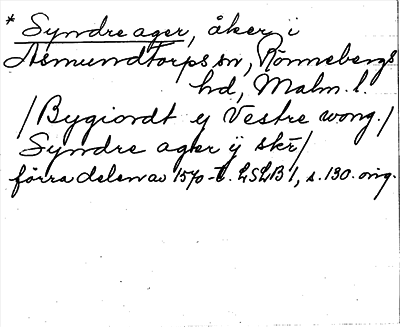 * Syndre ager, åker i
Asmundtorps sn, Rönnebergs
hd, Malm. l.
/Bygiordt ey Vestre wong./
Syndre ager ÿ skr/
förra delen av 1570-t. LSLB 1, s. 130. orig.